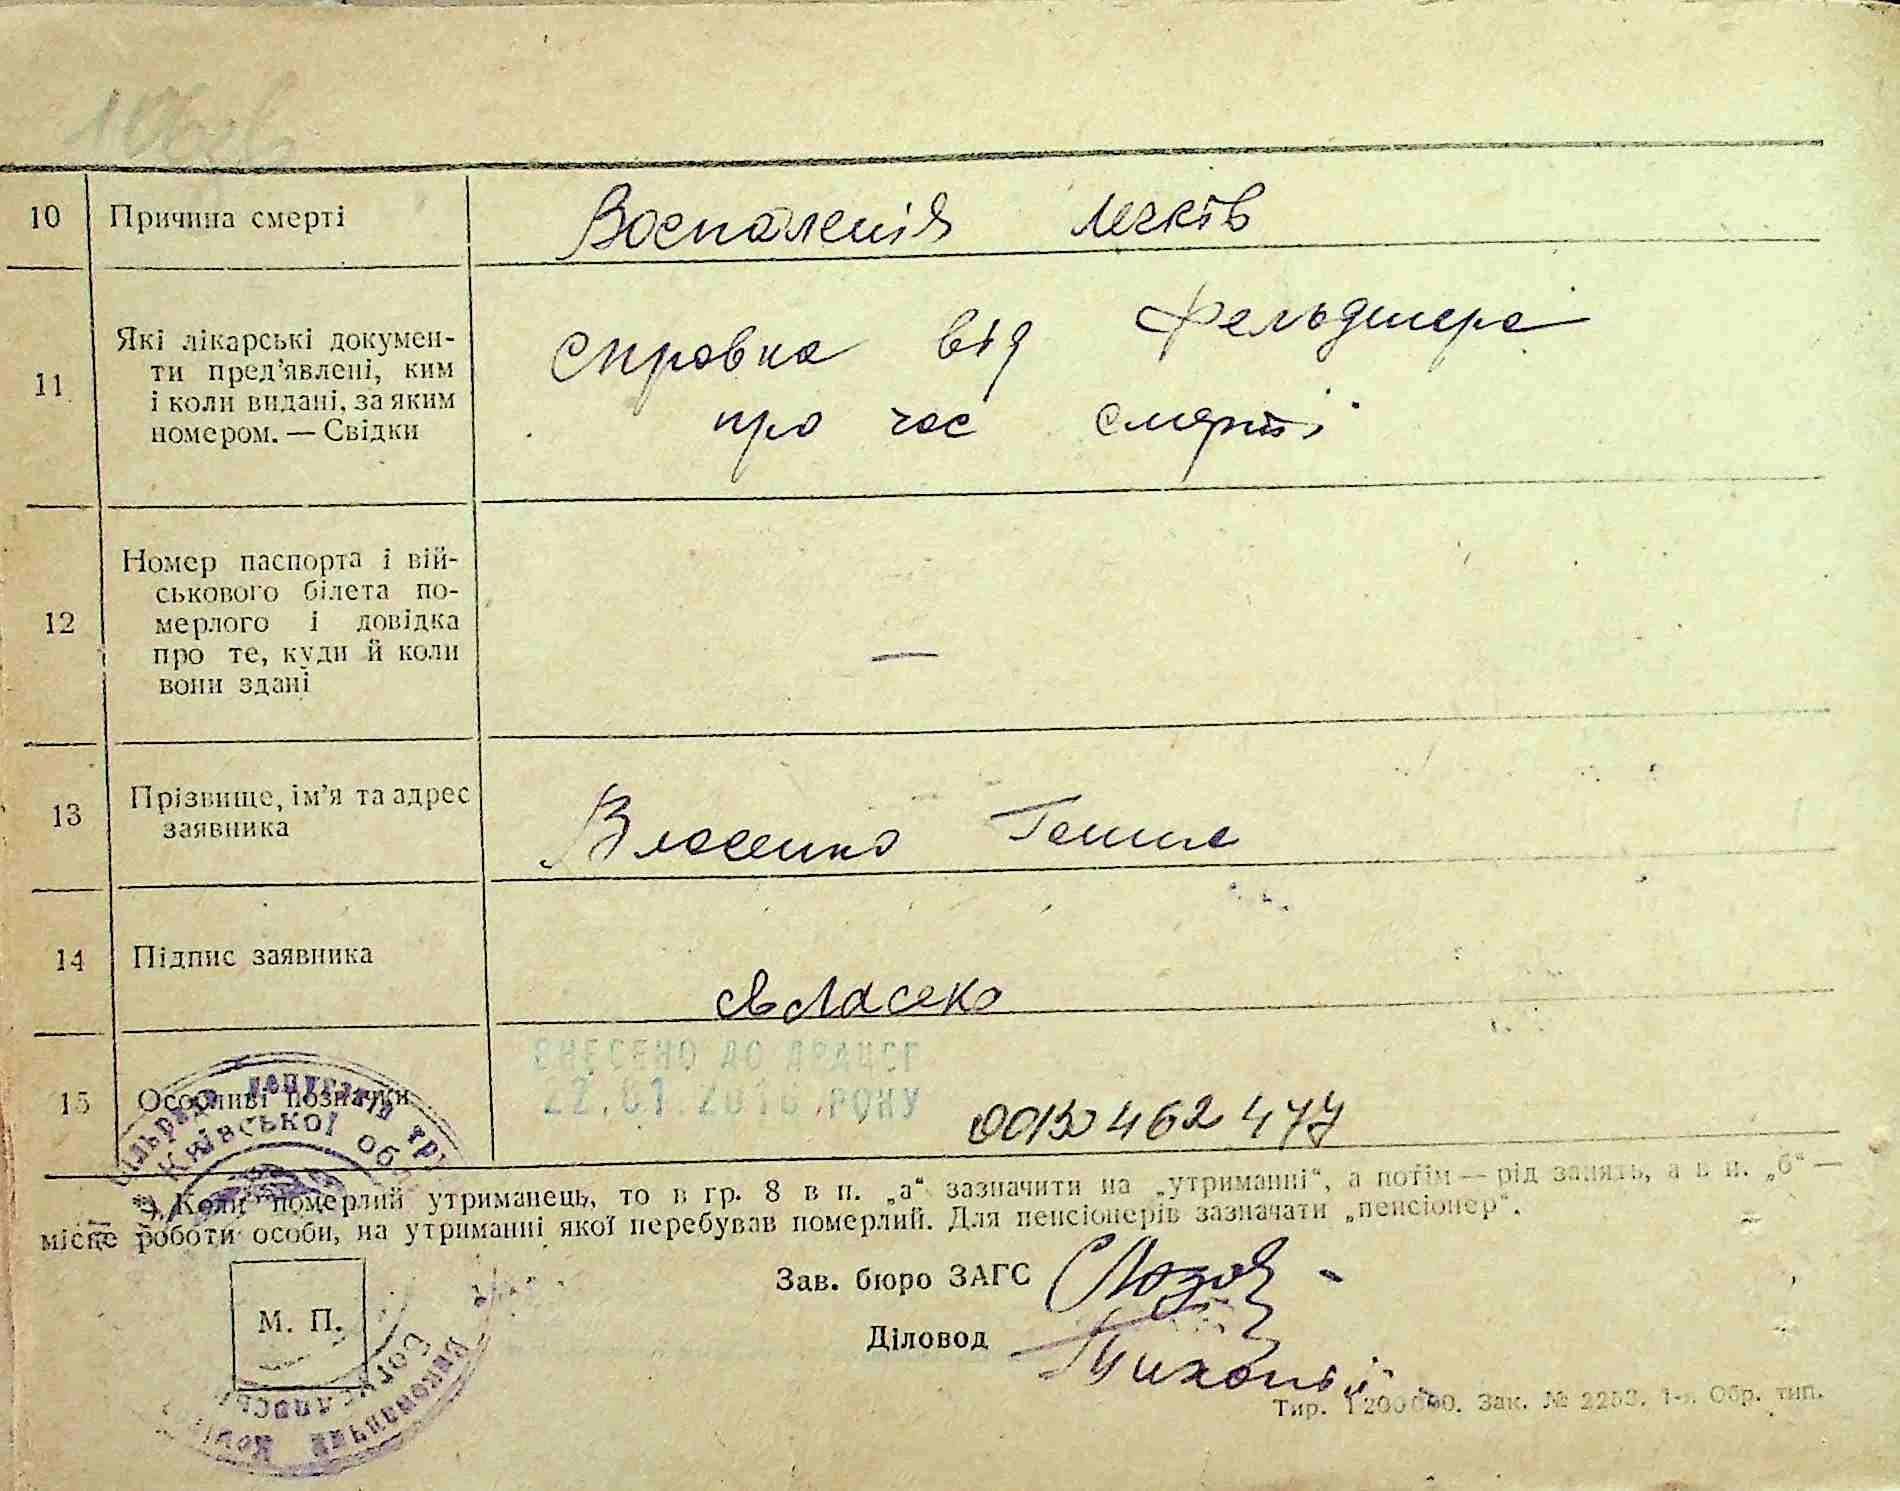 10 Причина смерті Воспаленія легків
11 Які лікарські докумен-
ти пред'явлені, ким
і коли видані, за яким
номером. — Свідки
справка від фельдшера
про час смерті
12 Номер паспорта і вій-
ськового білета по-
мерлого і довідка
про те, куди й коли
вони здані
—
13 Прізвище, ім'я та адрес
заявника
Власенко Ганна
14 Підпис заявника
Власеко
15 Особливі позначки
ВНЕСЕНО ДО ДРАЦСГ
22.01.2016 РОКУ
00130462477
депутатів тру
Київської об
Коли померлий утриманець, то в гр. 8 в п. „а“ зазначити на „утриманні“, а потім — рід занять, а в п. „б“ —
місце роботи особи, на утриманні якої перебував померлий. Для пенсіонерів зазначати „пенсіонер“.
Зав. бюро ЗАГС
Діловод
М. П.
Виконавчий Коміт
Тир. 1200000. Зак. № 2253. 1-а. Обр. тип.